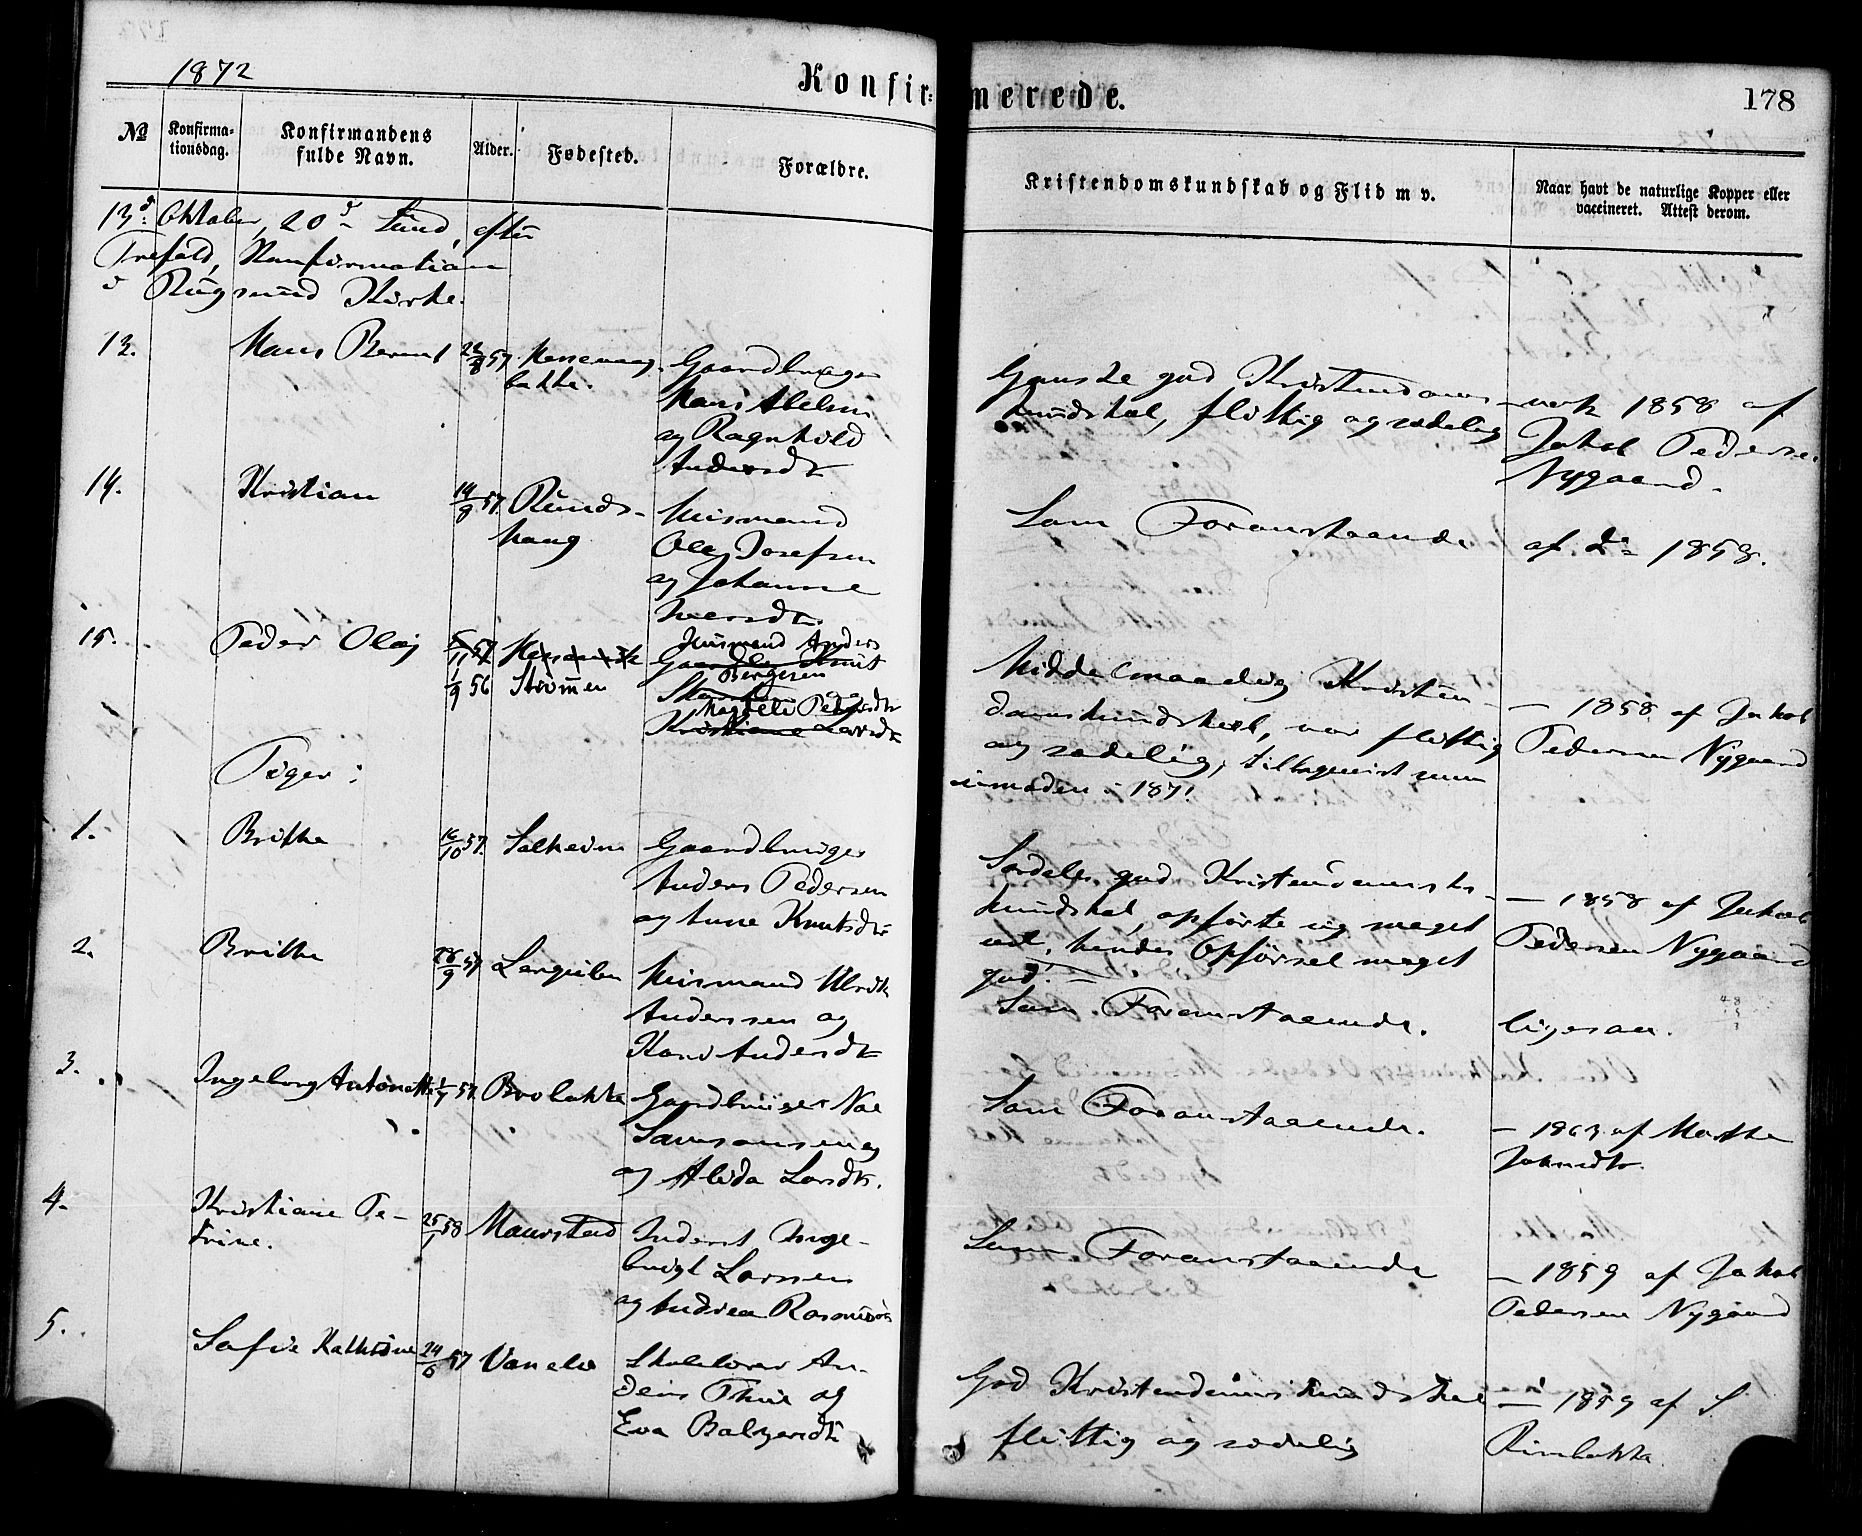 1872
Konfir=
merede.
178
No
Konfirma-
tionsdag.
Konfirmandens
fulde Navn.
Alder.
Fødested.
Forældre.
Kristendomskundskab og Flid m v.
Naar havt de naturlige Kopper eller
vaccineret. Attest derom.
13de Oktober, 20de Sünd. efter
Trefold, Konfirmation
i Rügsund Kirke.
13.
Hans Bernt
57
bakke.
Gaardbruger
Hans Abelsen
og Ragnhild
Andersdtr
Ganske god Kristendoms-
kundskab, flittig og sædelig
1858 af
Jakob Pedersen
Nygaard.
14.
Kristian
14/8 57
Ründe-
haug
Husmand
Ole Josefsen
og Johanne
Iversdtr.
Som Foranstaaende
af do 1858.
15.
Peder Olai
1/9 56
Strömen
Husmand Anders
Bergesen
og
Magrete Pedersdtr
Middelmaadig Kristen-
domskundskab, var flittig
og sædelig, tilbagevist som
umoden i 1871
— 1858 af Jakob
Pedersen Nygaard
Piger:
1.
Brithe
16/10 57.
Salheim
Gaardbruger
Anders Pedersen
og Anne Knutsdtr
Særdeles god Kristendoms-
kundskab, opførte sig meget
vel, hendes Opførsel meget
god!
— 1858 af Jakob
Pedersen Nygaard
2.
Brithe
26/9 57
Husmand Ulrik
Anderssen og
Kari Andersdtr
Som Foranstaaende.
ligesaa.
3.
Ingeborg Antonette
57.
Brobakke
Gaardbruger Noe
Samsonsen og
og Alida Larsdtr.
Som Foranstaaende.
— 1863 af Marthe
Johnsdtr.
4.
Kristiane Pe-
trine.
25/1 58
Maurstad
Inderst Inge-
brigt Larssen
og Andrea Rasmusdtr
Som Foranstaaende
— 1859 af Jakob
Pedersen Nygaard
5.
Sofie Kathrine
24/6 57
Vanelv
Skolelærer An-
ders Thue og
Eva Balzersdtr
God Kristendomskundskab
flittig og sædelig
— 1859 af S
Rimbakke